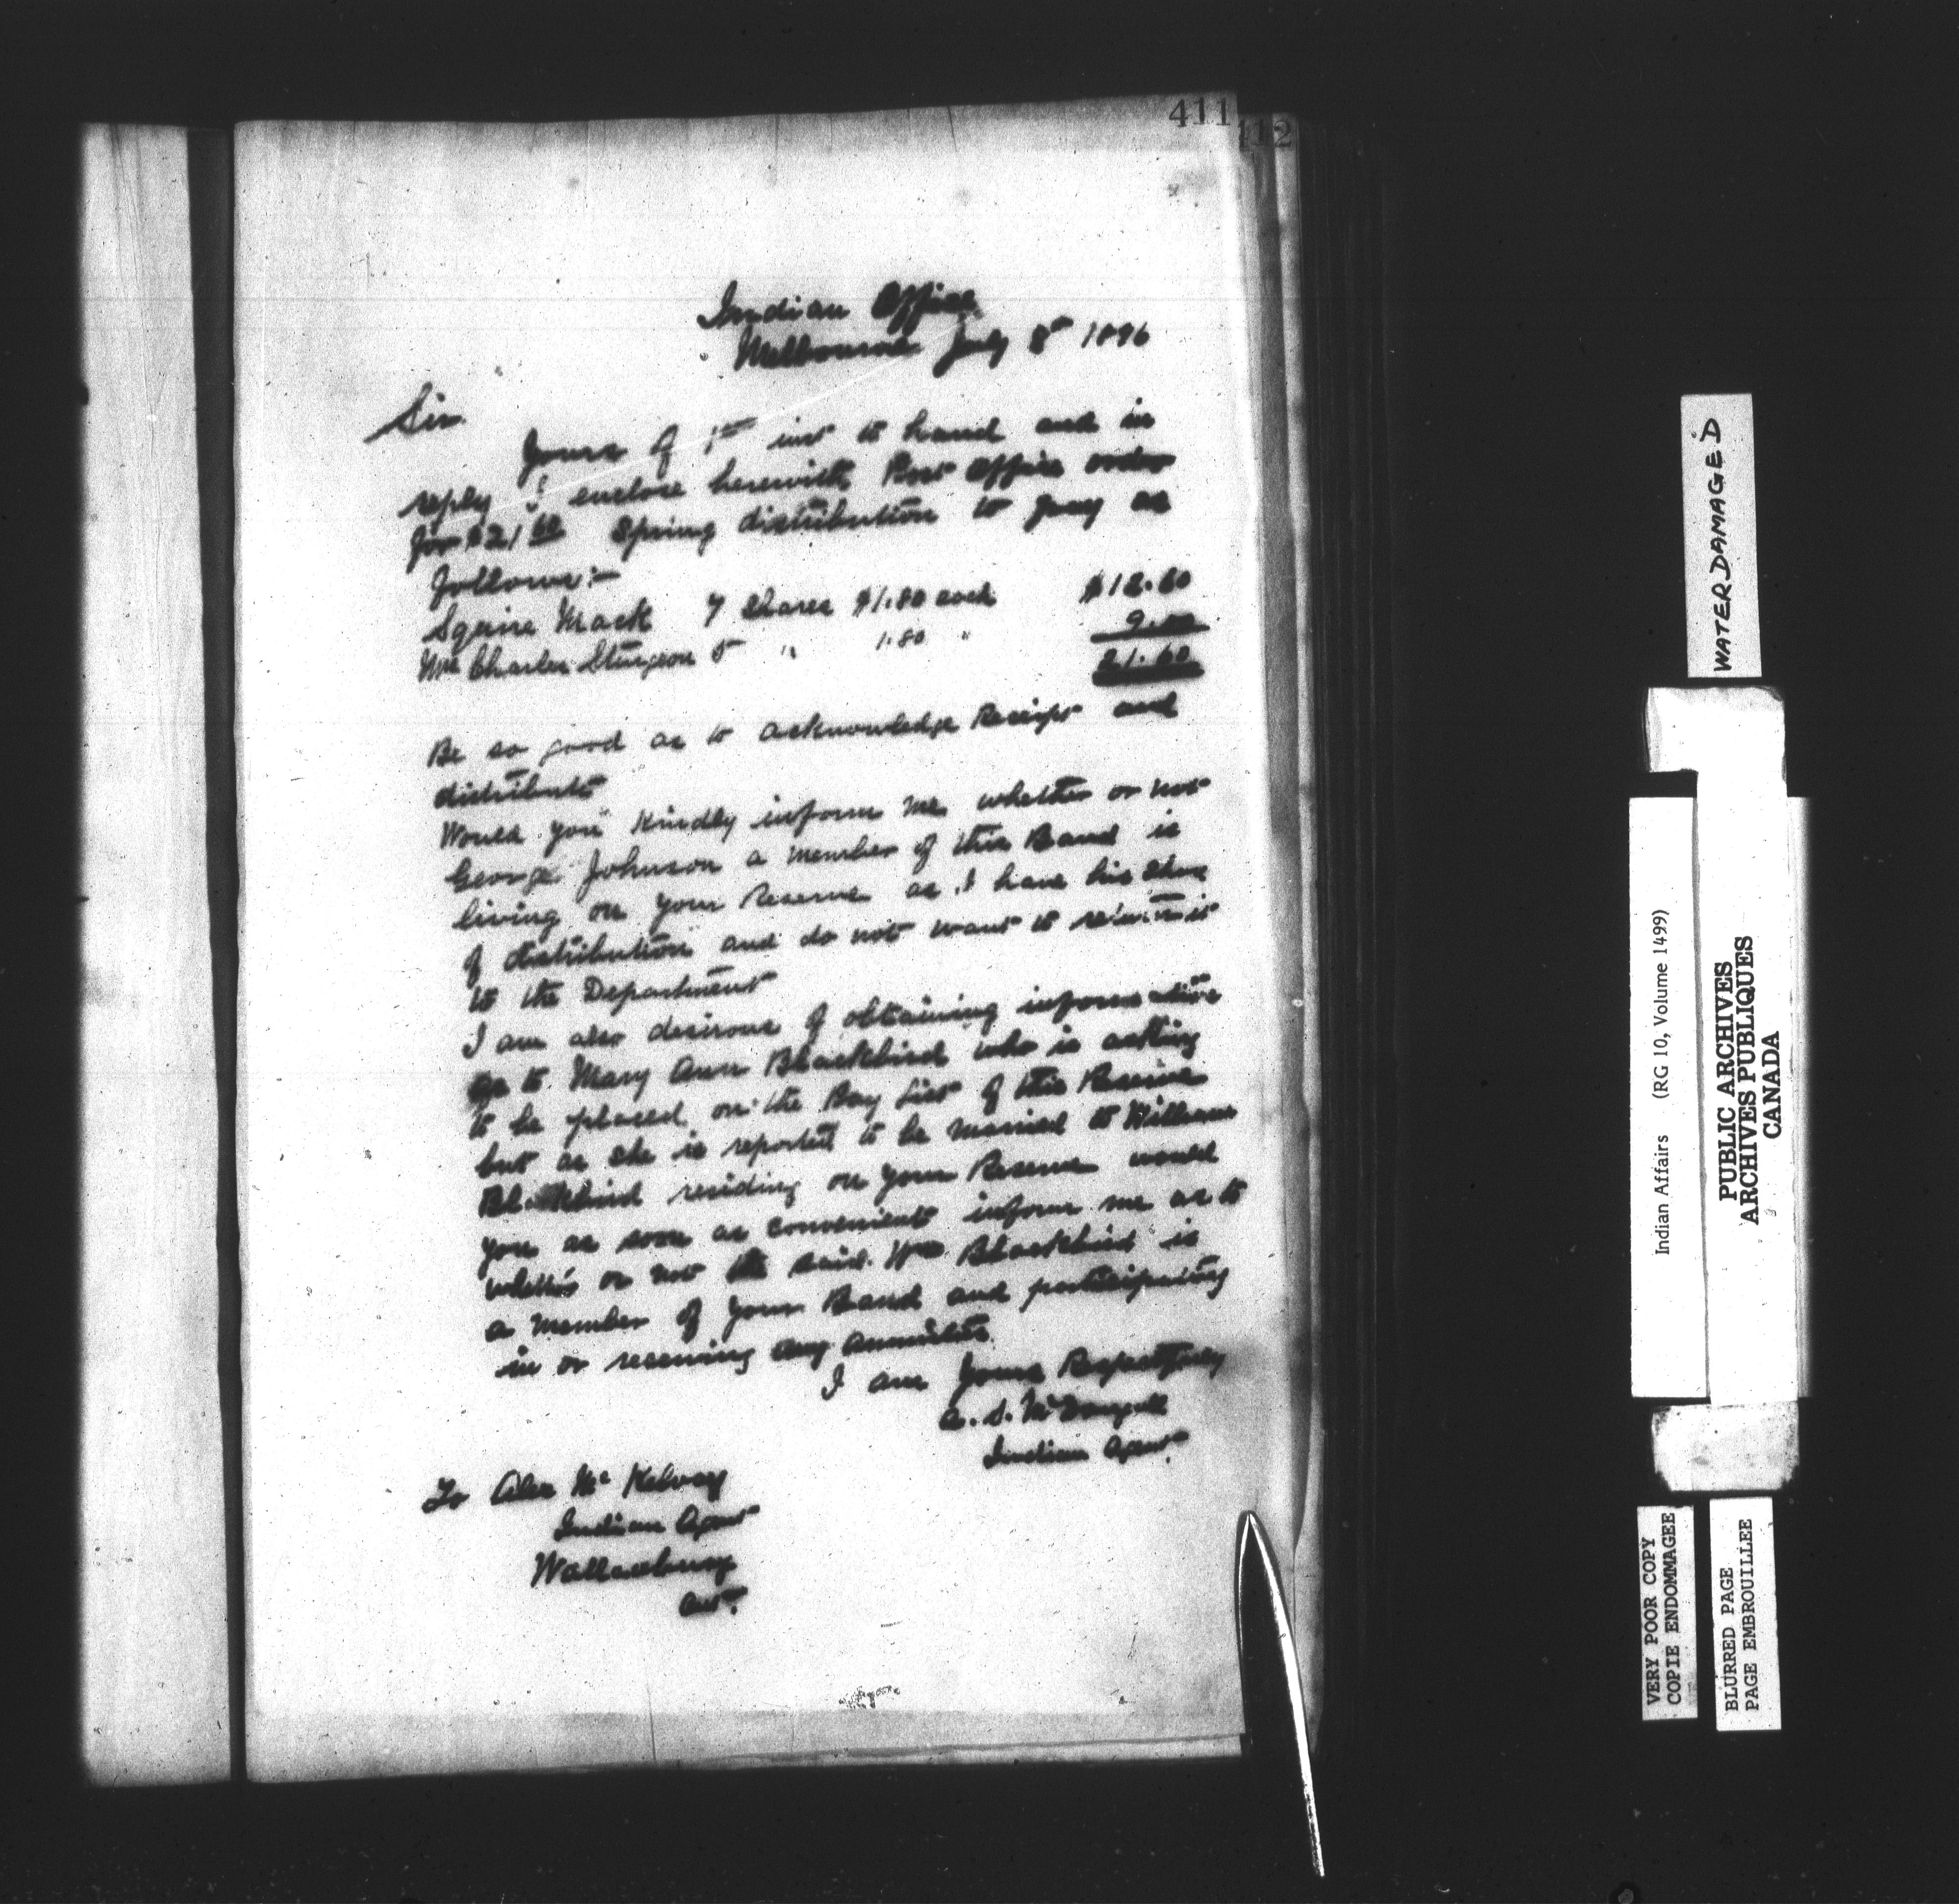 411
412
Indian Office
Melbourne July 8th 1896
Sir
Yours of 1st inst to hand and in
reply I enclose herewith Post Office order
for $21 60 Spring distribution to pay as
follows:-
Squire Mack 7 Shares $1.80 each $12.60
Mrs Charles Sturgeon 5 " 1.80 " 9.00
21.60
Be so good as to acknowledge Receipt and
distribute
Would you kindly inform me whether or not
George Johnson a member of this Band is
living on your Reserve as I have his share
of distribution and do not want to return it
to the Department
I am also desirous of obtaining information
as to Mary Ann Blackbird who is asking
to be placed on the Pay List of this Reserve
but as she is reported to be married to William
Blackbird residing on your Reserve would
you as soon as convenient inform me as to
whether or not the said Wm Blackbird is
a member of your Band and participating
in or receiving any annuities.
I am Yours Respectfully
A. S. McDougall
Indian Agent.
To Alex McKelvey
Indian Agent
Wallaceburg
Ont.
WATER DAMAGED
Indian Affairs (RG 10, Volume 1499)
PUBLIC ARCHIVES
ARCHIVES PUBLIQUES
CANADA
VERY POOR COPY
COPIE ENDOMMAGEE
BLURRED PAGE
PAGE EMBROUILLEE